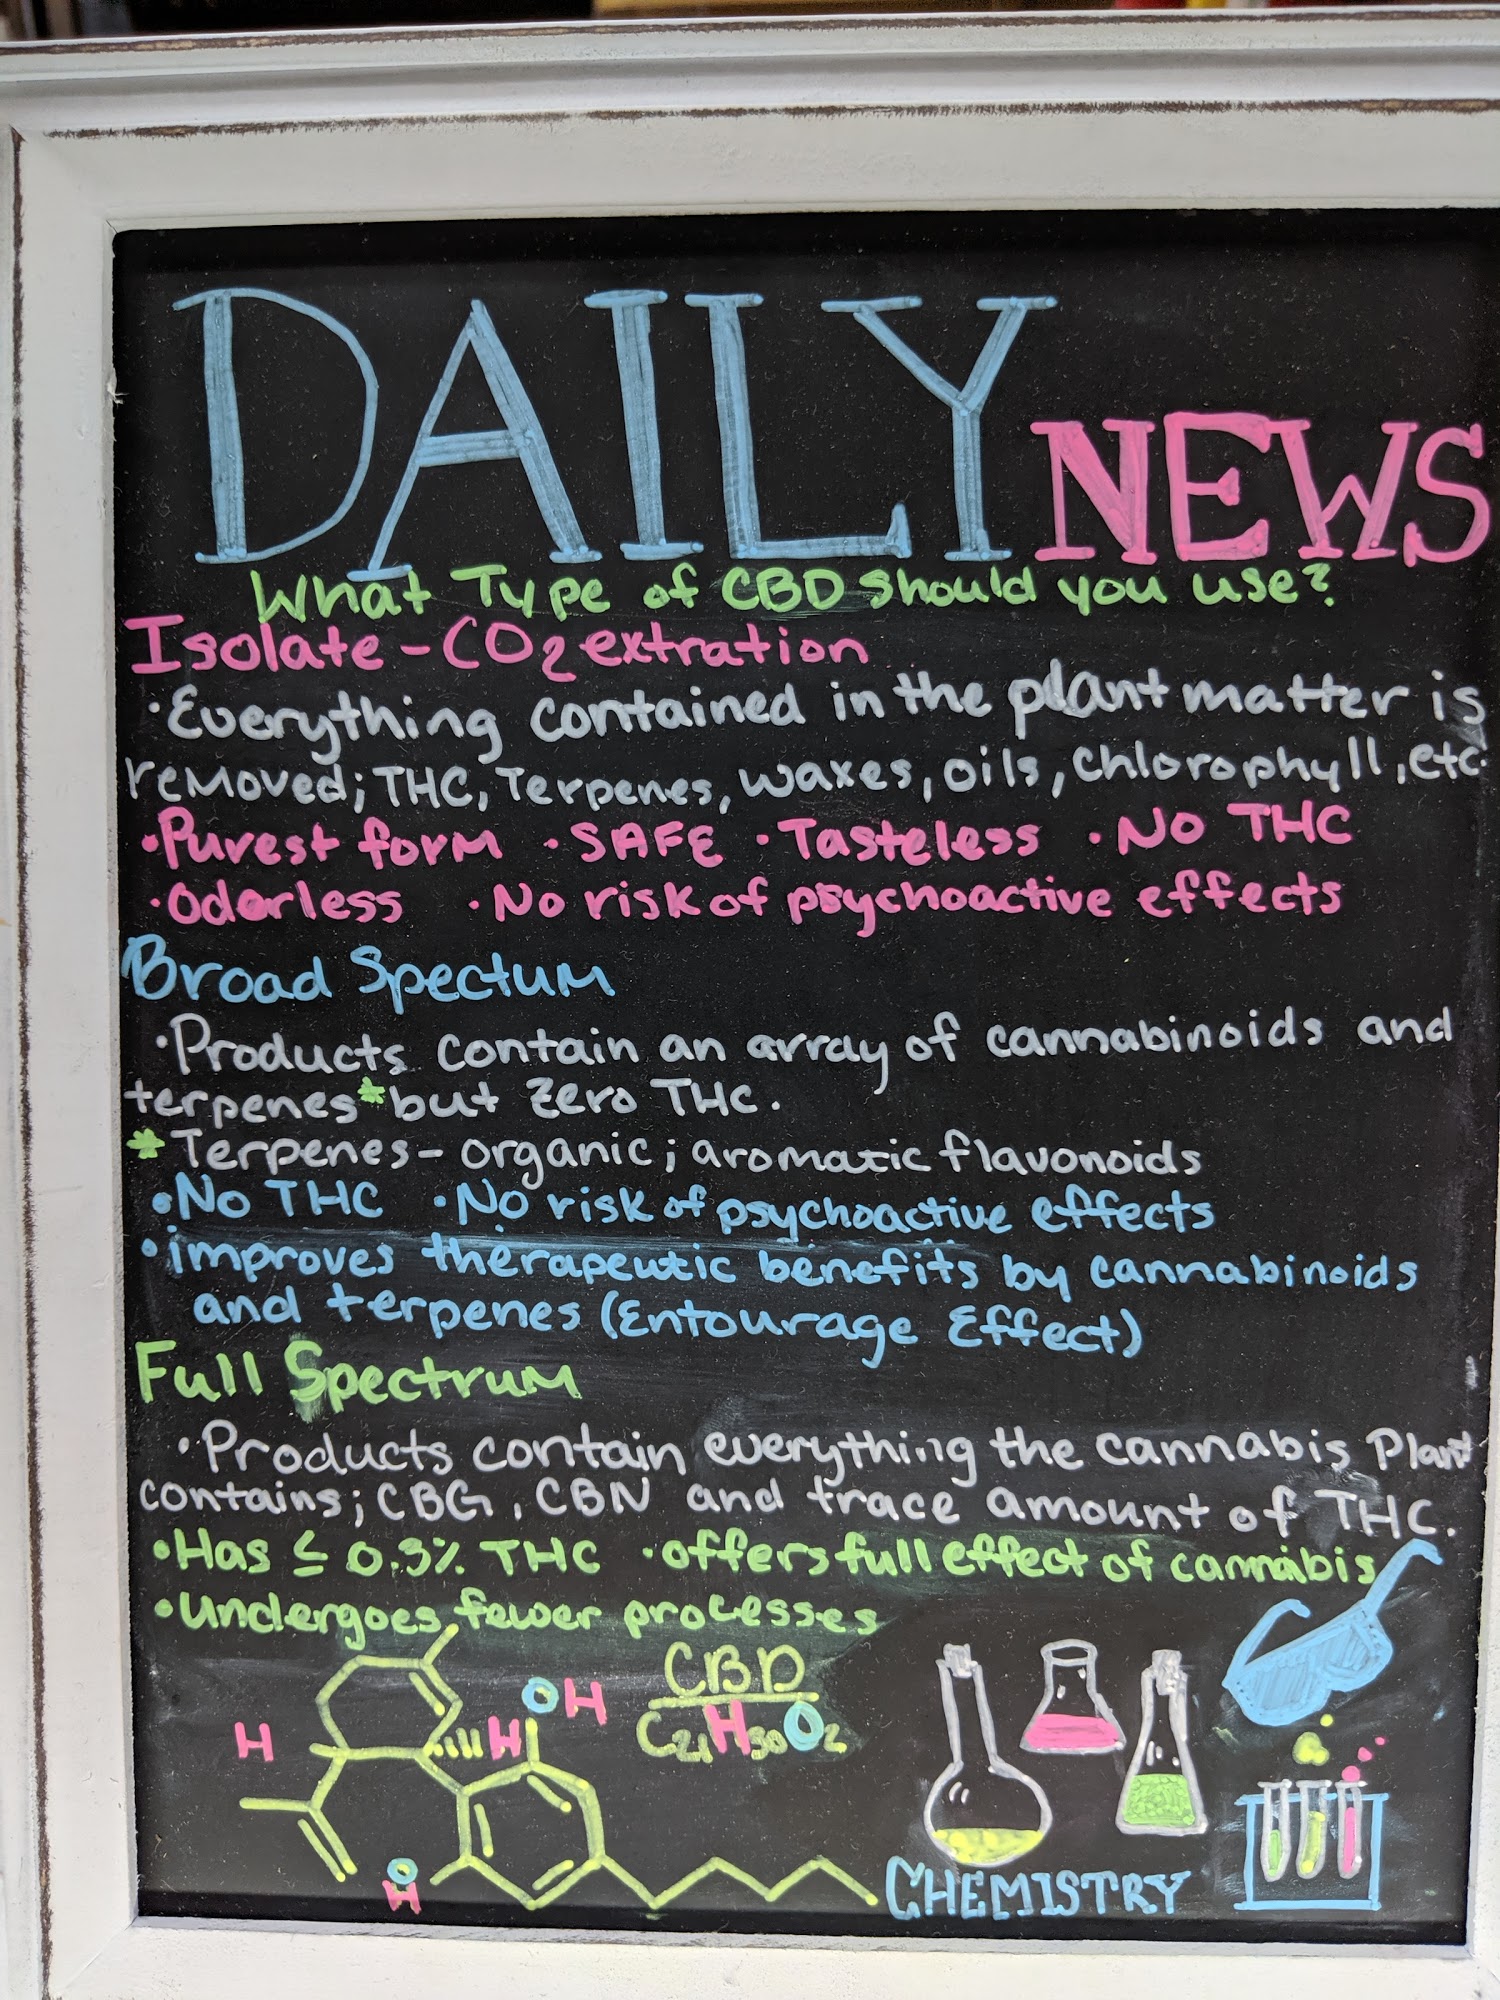 DAILY NEWS
What Type of CBD should you use?
Isolate - CO2 extration
· Everything contained in the plant matter is
removed; THC, Terpenes, waxes, oils, chlorophyll, etc.
· Purest form · SAFE · Tasteless · No THC
· Odorless · No risk of psychoactive effects
Broad Spectum
· Products contain an array of cannabinoids and
terpenes* but Zero THC.
* Terpenes - organic; aromatic flavonoids
· No THC · No risk of psychoactive effects
· improves therapeutic benefits by cannabinoids
and terpenes (Entourage Effect)
Full Spectrum
· Products contain everything the cannabis Plant
contains; CBG, CBN and trace amount of THC.
· Has ≤ 0.3% THC · offers full effect of cannabis
· Undergoes fewer processes
CBD
C21H30O2
OH
H
H
O
H
CHEMISTRY